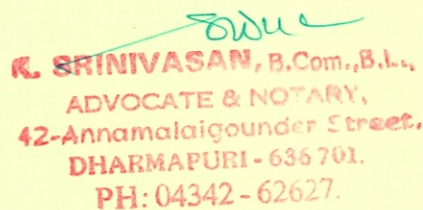 K. SRINIVASAN, B.Com.,B.L.,
ADVOCATE & NOTARY,
42-Annamalaigounder Street,
DHARMAPURI - 636 701.
PH: 04342 - 62627.